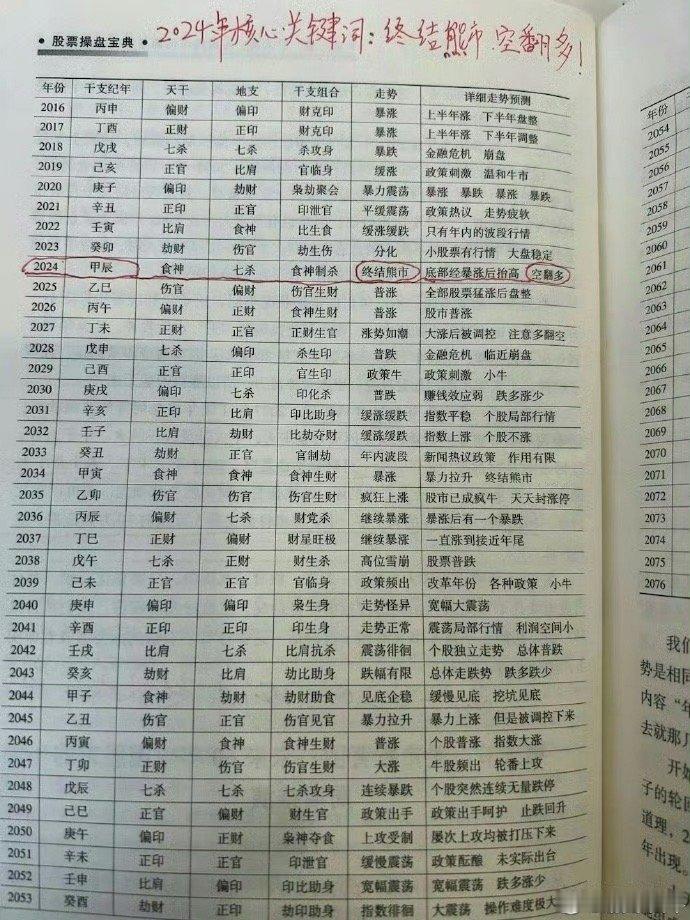 2024年核心关键词:终结熊市 空翻多!
股票操盘宝典
年份 干支纪年 天干 地支 干支组合 走势 详细走势预测
2016 丙申 偏财 偏印 财克印 暴涨 上半年涨 下半年盘整
2017 丁酉 正财 正印 财克印 暴涨 上半年涨 下半年调整
2018 戊戌 七杀 七杀 杀攻身 暴跌 金融危机 崩盘
2019 己亥 正官 比肩 官临身 缓涨 政策刺激 温和牛市
2020 庚子 偏印 劫财 枭劫聚会 暴力震荡 暴涨 暴跌 暴涨 暴跌
2021 辛丑 正印 正官 印泄官 平缓震荡 政策热议 走势疲软
2022 壬寅 比肩 食神 比生食 缓涨缓跌 只有年内的波段行情
2023 癸卯 劫财 伤官 劫生伤 分化 小股票有行情 大盘稳定
2024 甲辰 食神 七杀 食神制杀 终结熊市 底部经暴涨后抬高 空翻多
2025 乙巳 伤官 偏财 伤官生财 普涨 全部股票猛涨后盘整
2026 丙午 偏财 正财 食神生财 普涨 股市普涨
2027 丁未 正财 正官 正财生官 涨势如潮 大涨后被调控 注意多翻空
2028 戊申 七杀 偏印 杀生印 普跌 金融危机 临近崩盘
2029 己酉 正官 正印 官生印 政策牛 政策刺激 小牛
2030 庚戌 偏印 七杀 印化杀 普跌 赚钱效应弱 跌多涨少
2031 辛亥 正印 比肩 印比助身 缓涨缓跌 指数平稳 个股局部行情
2032 壬子 比肩 劫财 比劫夺财 缓涨缓跌 指数上涨 个股不涨
2033 癸丑 劫财 正官 官制劫 年内波段 新闻热议政策 作用有限
2034 甲寅 食神 食神 食神生财 暴涨 暴力拉升 终结熊市
2035 乙卯 伤官 伤官 伤官生财 疯狂上涨 股市已成疯牛 天天封涨停
2036 丙辰 偏财 七杀 财党杀 继续暴涨 暴涨后有一个暴跌
2037 丁巳 正财 偏财 财星旺极 继续暴涨 一直涨到接近年尾
2038 戊午 七杀 正财 财生杀 高位雪崩 股票普跌
2039 己未 正官 正官 官临身 政策频出 改革年份 各种政策 小牛
2040 庚申 偏印 偏印 枭生身 走势怪异 宽幅大震荡
2041 辛酉 正印 正印 印生身 走势正常 震荡局部行情 利润空间小
2042 壬戌 比肩 七杀 比肩抗杀 震荡徘徊 个股独立走势 总体普跌
2043 癸亥 劫财 比肩 劫比助身 跌幅有限 总体走跌势 跌多跌少
2044 甲子 食神 劫财 劫财助食 见底企稳 缓慢见底 挖坑见底
2045 乙丑 伤官 正官 伤官见官 暴力拉升 暴力上涨 但是被调控下来
2046 丙寅 偏财 食神 食神生财 普涨 个股普涨 指数大涨
2047 丁卯 正财 伤官 伤官生财 大涨 牛股频出 轮番上攻
2048 戊辰 七杀 七杀 七杀攻身 连续暴跌 个股突然连续无量跌停
2049 己巳 正官 偏财 财生官 政策出手 政策出手呵护 止跌回升
2050 庚午 偏印 正财 枭神夺食 上攻受制 屡次上攻均被打压下来
2051 辛未 正印 正官 印泄官 缓慢震荡 政策酝酿 未实际出台
2052 壬申 比肩 偏印 印生身 宽幅震荡 宽幅震荡 跌多涨少
2053 癸酉 劫财 正印 印劫助身 指数徘徊 大震荡 操作难度极大
年份
2054
2055
2056
2057
2058
2059
2060
2061
2062
2063
2064
2065
2066
2067
2068
2069
2070
2071
2072
2073
2074
2075
2076
我们
势是相同
内容“年
去就那几
开始
子的轮回
道理,2
年出现。